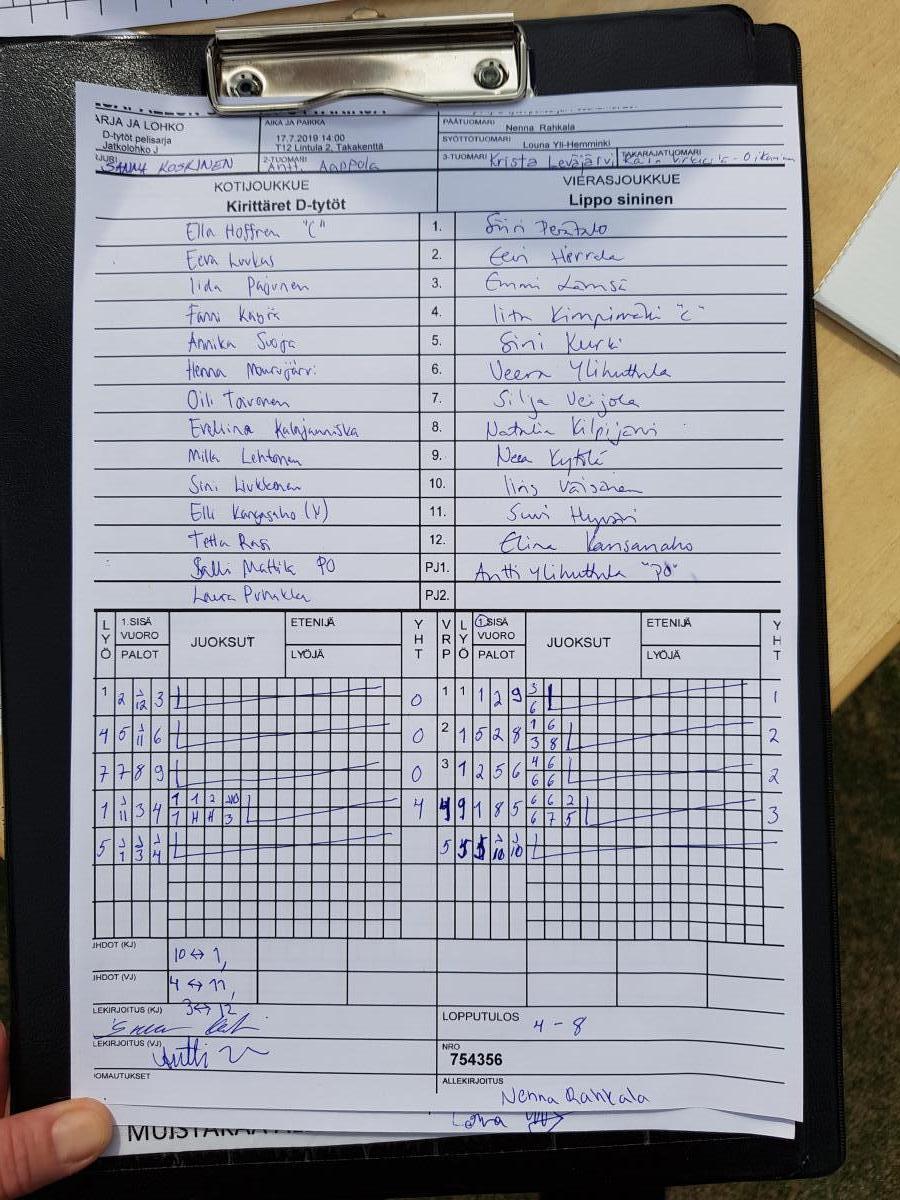 ARJA JA LOHKO
D-tytöt pelisarja
Jatkolohko J
AIKA JA PAIKKA
17.7.2019 14:00
T12 Lintula 2, Takakenttä
PÄÄTUOMARI
Nenna Rahkala
SYÖTTÖTUOMARI
Louna Yli-Hemminki
SANNA KOSKINEN
2-TUOMARI
Aappola
3-TUOMARI Krista Leväjärvi
TAKARAJATUOMARI
KOTIJOUKKUE
Kirittäret D-tytöt
VIERASJOUKKUE
Lippo sininen
Ella Hoffren "C" 1. Siiri Perätalo
Eeva Luukas 2. Eevi Herrala
Iida Pajunen 3. Emmi Lämsä
Fanni 4. Iita Kimpimäki "C"
Annika Suoja 5. Sini Kurki
Henna 6. Veera Ylihuttula
Oili Tarvonen 7. Silja Veijola
Eveliina 8. Natalia Kilpijärvi
Milla Lehtonen 9. Neea
Sini Liukkonen 10. Iiris Väisänen
Elli Kangasaho (V) 11. Suvi
Tetta Rasi 12. Elina Kansanaho
Salli Mattila PO PJ1. Antti Ylihuttula "PO"
Laura PJ2.
LYÖ 1.SISÄ VUORO PALOT JUOKSUT ETENIJÄ LYÖJÄ YHT VRP LYÖ 1.SISÄ VUORO PALOT JUOKSUT ETENIJÄ LYÖJÄ YHT
1 2 12 3 0 1 1 1 2 9 3 6 1
4 5 11 6 0 2 1 5 2 8 1 6 3 8 2
7 7 8 9 0 3 1 2 5 6 4 6 6 6 2
1 11 3 4 1 1 2 10 1 4 4 3 4 4 9 1 8 5 6 6 2 6 7 5 3
5 1 3 4 5 5 10 10
IHDOT (KJ)
10 ↔ 1,
IHDOT (VJ)
4 ↔ 11,
3 ↔ 12
LEKIRJOITUS (KJ)
LOPPUTULOS
4 - 8
LEKIRJOITUS (VJ)
Antti
NRO
754356
OMAUTUKSET
ALLEKIRJOITUS
Nenna Rahkala